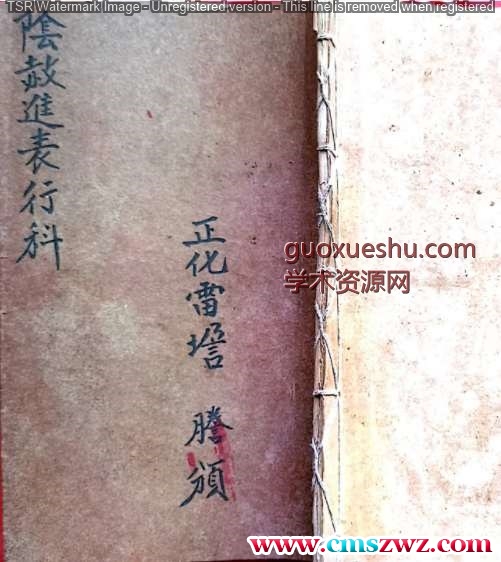 TSR Watermark Image - Unregistered version - This line is removed when registered
陰敼進表行科
正化雷壇 謄頒
guoxueshu.com
学术资源网
www.cmszwz.com